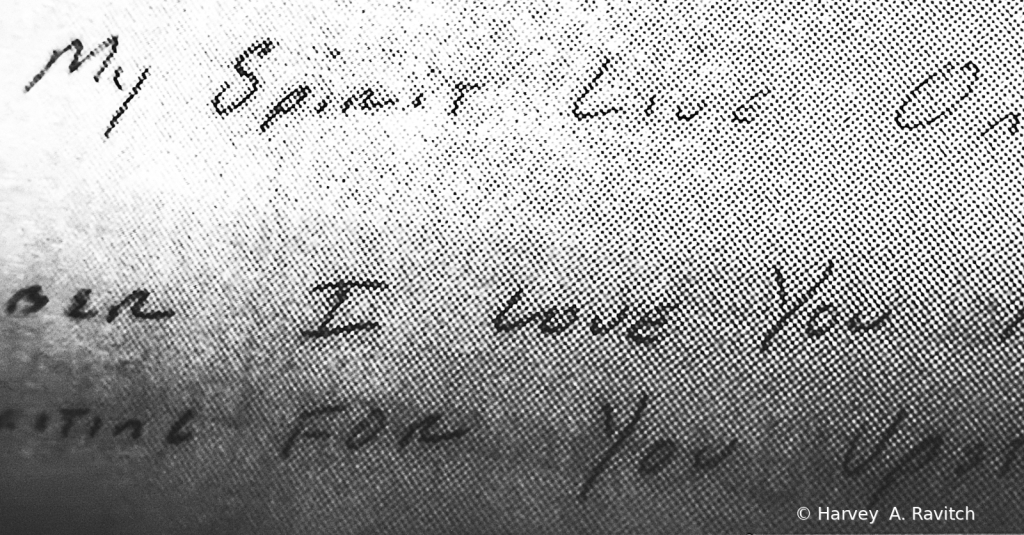 My Spirit Live On
BER I Love You
AITING FOR You Upst
© Harvey A. Ravitch